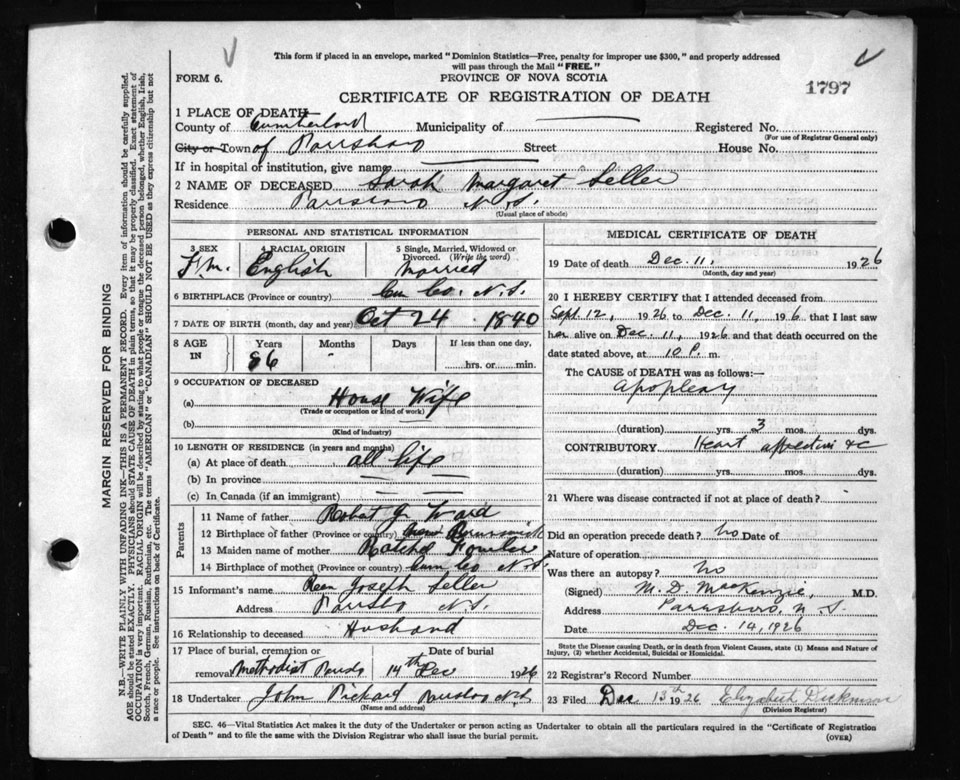 This form if placed in an envelope, marked "Dominion Statistics—Free, penalty for improper use $300," and properly addressed
will pass through the Mail "FREE."
FORM 6.
PROVINCE OF NOVA SCOTIA
1797
CERTIFICATE OF REGISTRATION OF DEATH
1 PLACE OF DEATH
County of Cumberland Municipality of Registered No.
(For use of Registrar General only)
City or Town of Parrsboro Street House No.
If in hospital or institution, give name
2 NAME OF DECEASED Sarah Margaret
Residence Parrsboro N.S.
(Usual place of abode)
PERSONAL AND STATISTICAL INFORMATION
3 SEX 4 RACIAL ORIGIN 5 Single, Married, Widowed or Divorced. (Write the word)
English Married
6 BIRTHPLACE (Province or country) Co. N.S.
7 DATE OF BIRTH (month, day and year) Oct 24 1840
8 AGE IN Years Months Days If less than one day.
86 " hrs. or min.
9 OCCUPATION OF DECEASED
(a) House Wife
(Trade or occupation or kind of work)
(b)
(Kind of industry)
10 LENGTH OF RESIDENCE (in years and months)
(a) At place of death all life
(b) In province
(c) In Canada (if an immigrant)
Parents
11 Name of father Ward
12 Birthplace of father (Province or country) Brunswick
13 Maiden name of mother Fowler
14 Birthplace of mother (Province or country) Cum Co N.S.
15 Informant's name Joseph
Address N.S.
16 Relationship to deceased Husband
17 Place of burial, cremation or removal Methodist Date of burial 14th Dec 1926
18 Undertaker John Pickard N.S.
(Name and address)
MEDICAL CERTIFICATE OF DEATH
19 Date of death Dec. 11. 1926
(Month, day and year)
20 I HEREBY CERTIFY that I attended deceased from
Sept. 12, 1926 to Dec. 11, 1926 that I last saw
her alive on Dec. 11, 1926 and that death occurred on the
date stated above, at 10 P. m.
The CAUSE of DEATH was as follows:—
Apoplexy
(duration) yrs. 3 mos. dys.
CONTRIBUTORY Heart &c
(duration) yrs. mos. dys.
21 Where was disease contracted if not at place of death?
Did an operation precede death? No Date of
Nature of operation
Was there an autopsy? No
(Signed) M. D. MacKenzie, M.D.
Address Parrsboro, N.S.
Date Dec. 14, 1926
State the Disease causing Death, or in death from Violent Causes, state (1) Means and Nature of
Injury, (2) whether Accidental, Suicidal or Homicidal.
22 Registrar's Record Number
23 Filed Dec 13th 1926 Elizabeth
(Division Registrar)
SEC. 46—Vital Statistics Act makes it the duty of the Undertaker or person acting as Undertaker to obtain all the particulars required in the "Certificate of Registration
of Death" and to file the same with the Division Registrar who shall issue the burial permit.
(OVER)
MARGIN RESERVED FOR BINDING
N.B.—WRITE PLAINLY WITH UNFADING INK—THIS IS A PERMANENT RECORD. Every item of information should be carefully supplied.
AGE should be stated EXACTLY. PHYSICIANS should STATE CAUSE OF DEATH in plain terms, so that it may be properly classified. Exact statement of
OCCUPATION is very important. RACIAL ORIGIN will be described by stating to what people or tongue the deceased person belonged, whether English, Irish,
Scotch, French, German, Russian, Ruthenian, etc. The terms "AMERICAN" or "CANADIAN" SHOULD NOT BE USED as they express citizenship but not
a race or people. See instructions on back of Certificate.